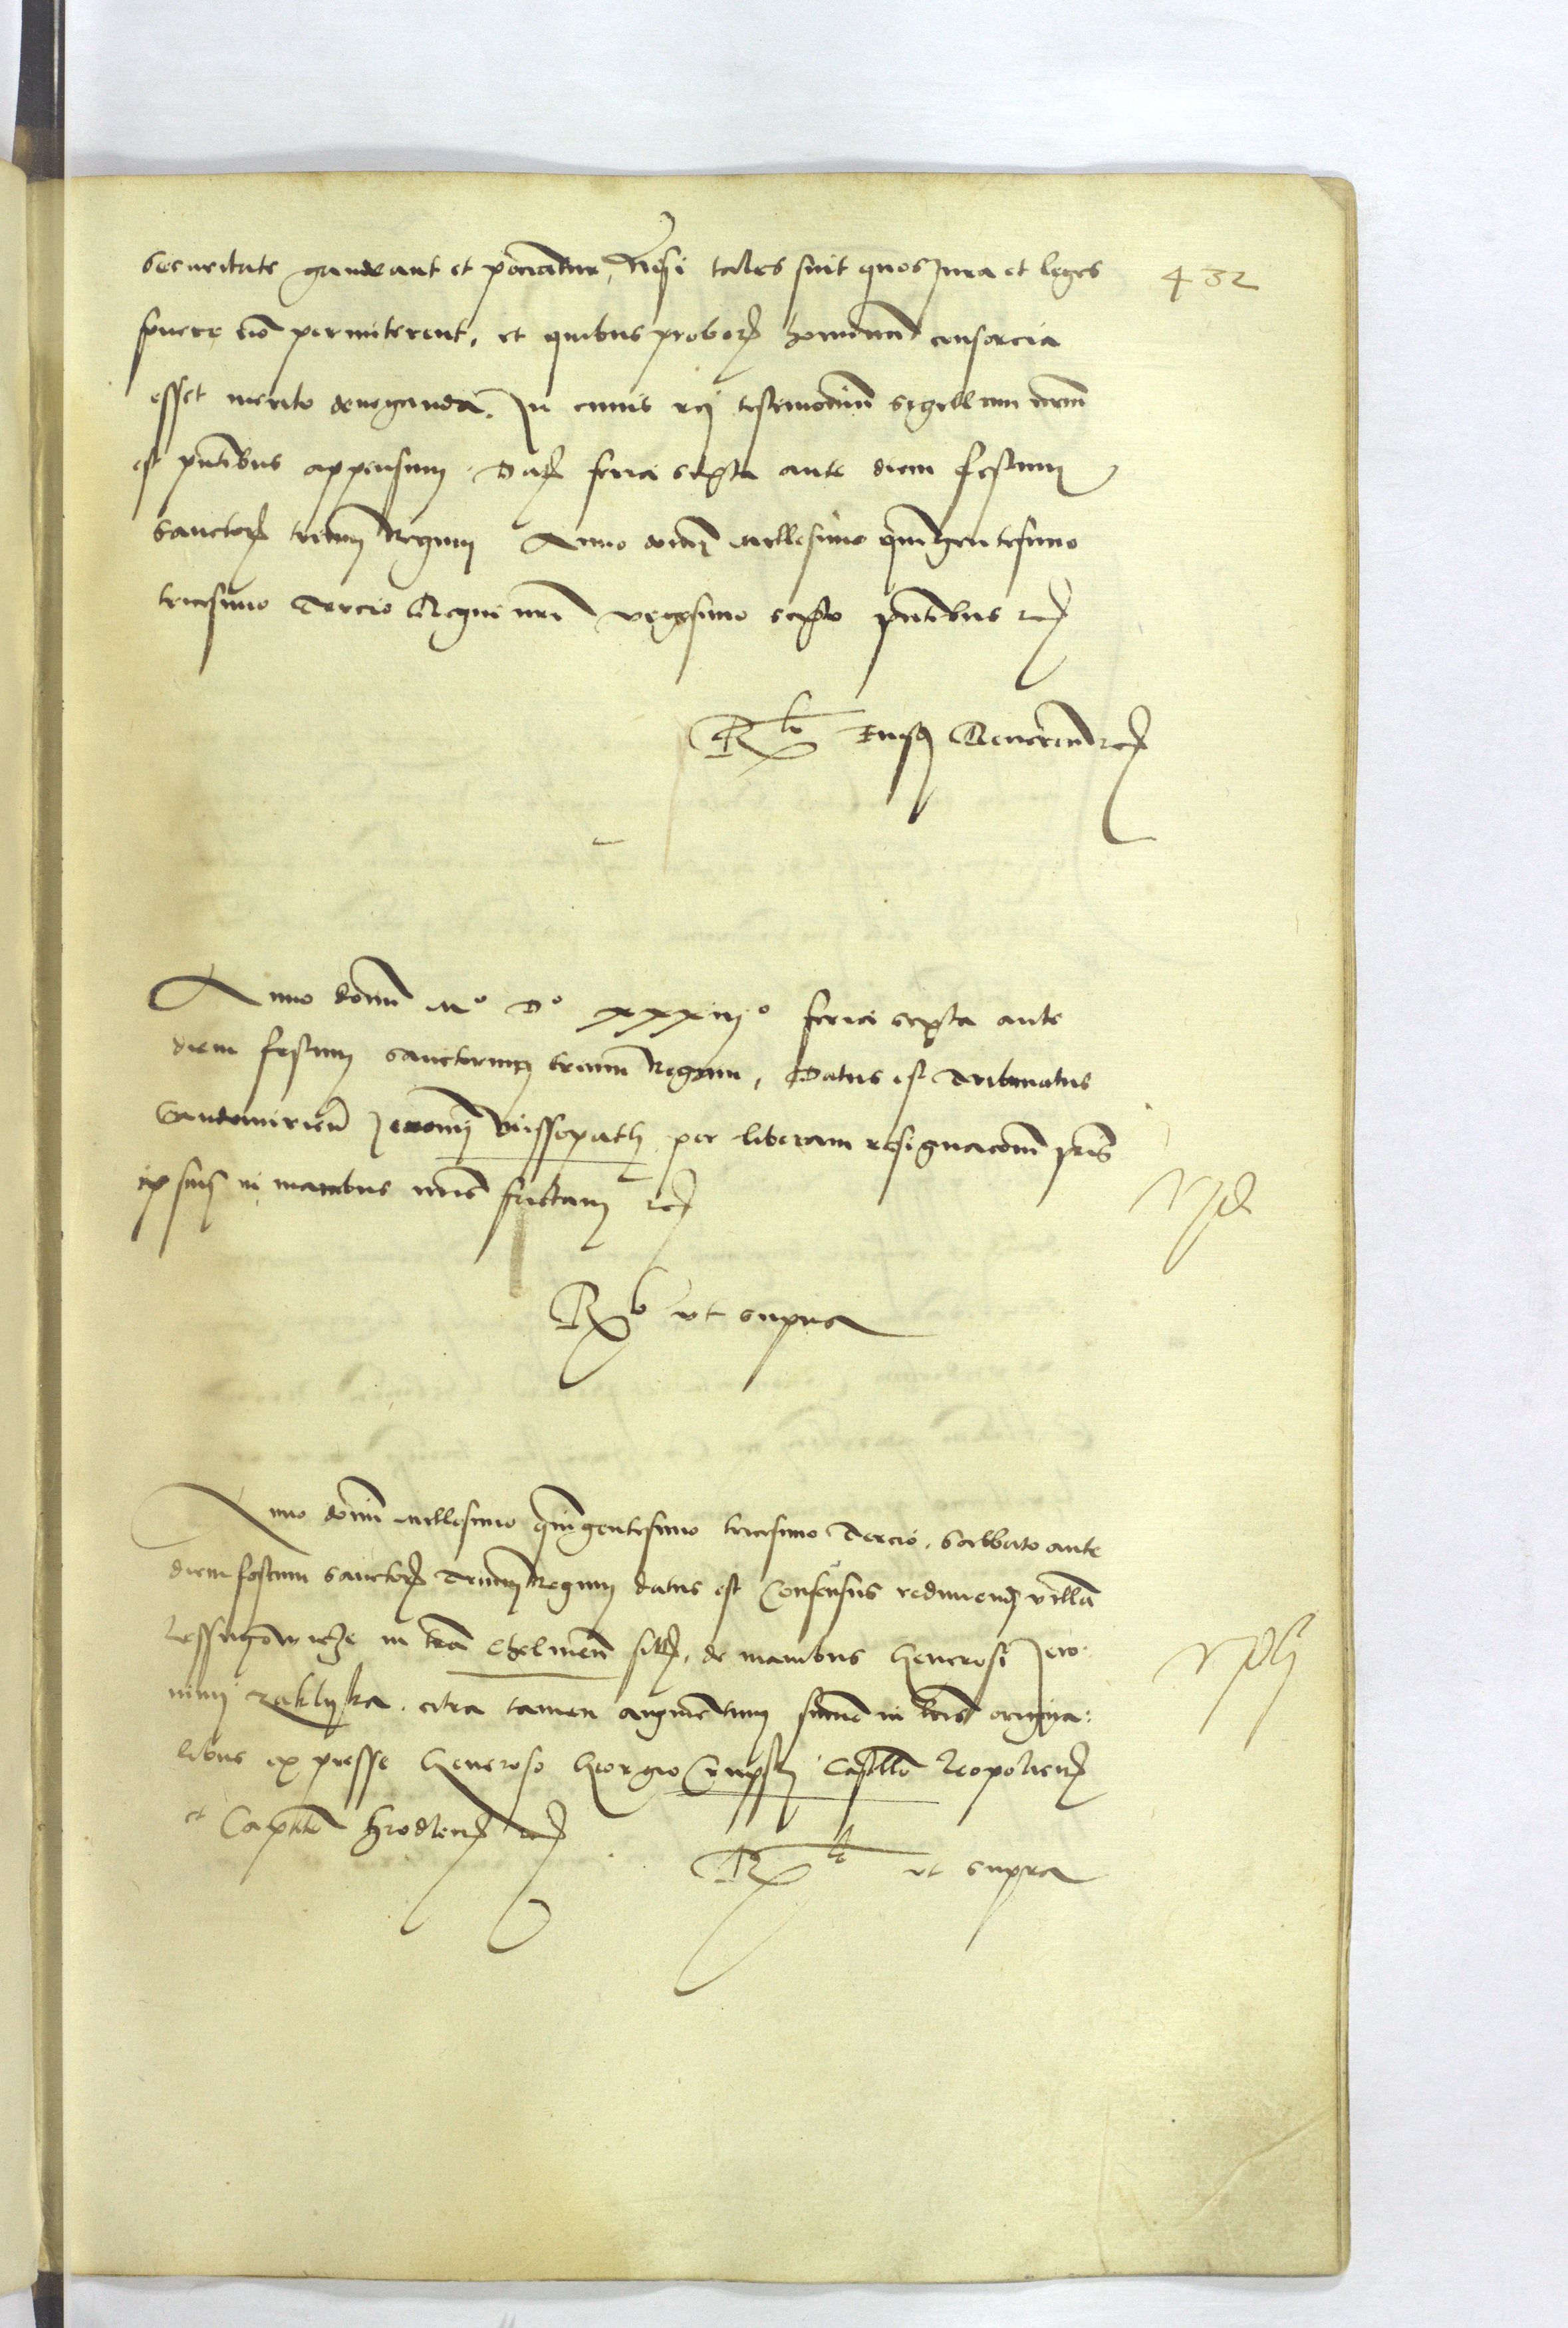 432
securitate gaudeant et pociantur, Nisi tales sint quos Jura et leges
fovere no permiterent, et quibus probor hominum consorcia
esset merito deneganda. In cuius rej testimonium sigillum nrm
est pntibus appensum. Dat feria sexta ante diem festum
Sanctor trium Regum Anno domi millesimo quingentesimo
tricesimo Tercio Regni nri vigesimo septo pntibus etc
Rlo Eiusd Reveren etc
Anno domi Mo Do xxxiijo feria sexta ante
diem festum sanctorum trium Regum, Datus est Tribunatus
Sandomirien Jeronimj per liberam resignacom pris
ipsius in manibus nris factam etc
Rlo vt supra
Anno domi millesimo quingentesimo tricesimo Tercio, Sabbato ante
diem festum Sanctor Trium Regum datus est Consensus redimend villa
in tra Chelmen sitt, de manibus Generosi Jero:
nimj citra tamen augmentum summe in tris origina:
libus expresse Generoso Georgio Castllo Leopolien
et Capito Hrodlen etc
Rlo vt supra